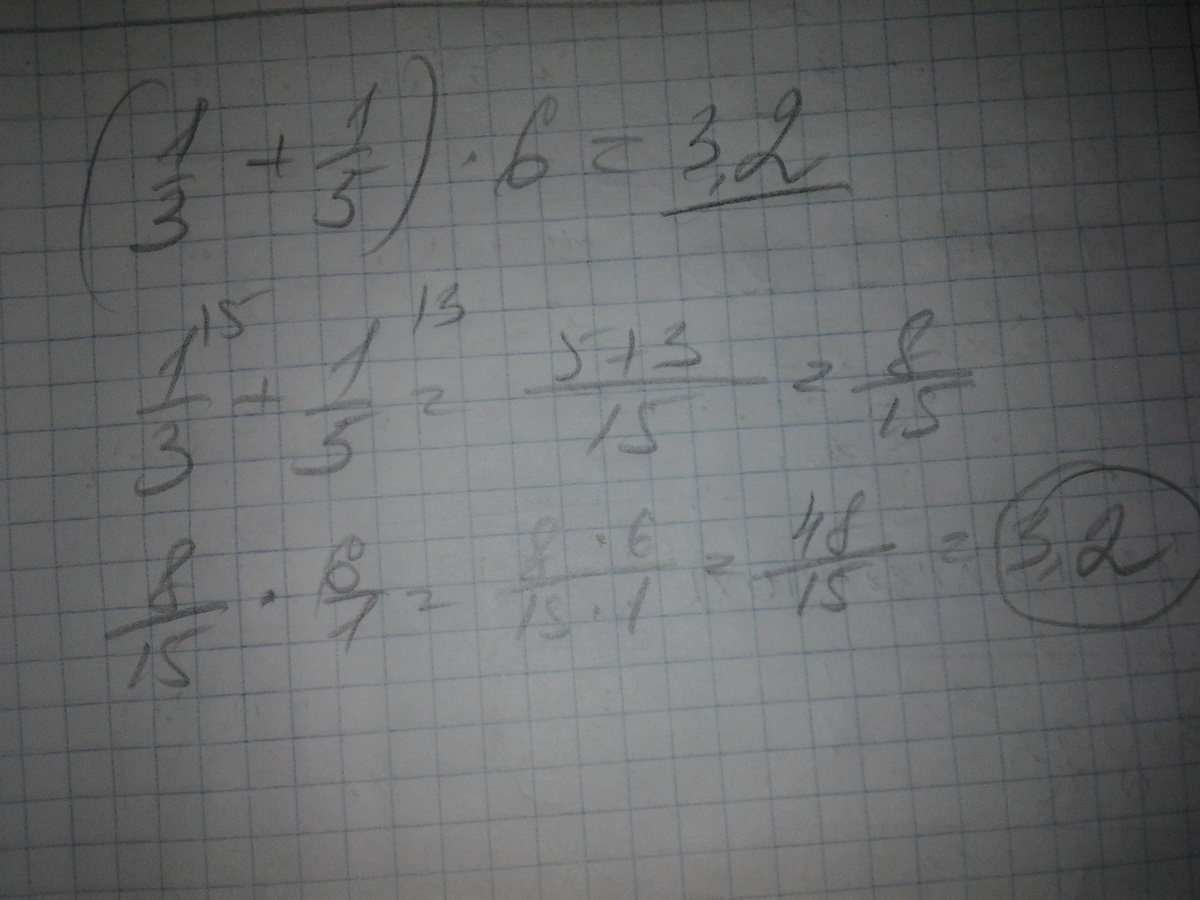 (1/3 + 1/5) · 6 = 3,2
1/3 ⁽⁵ + 1/5 ⁽³ = 5+3/15 = 8/15
8/15 · 6/1 = 8·6/15·1 = 48/15 = 3,2